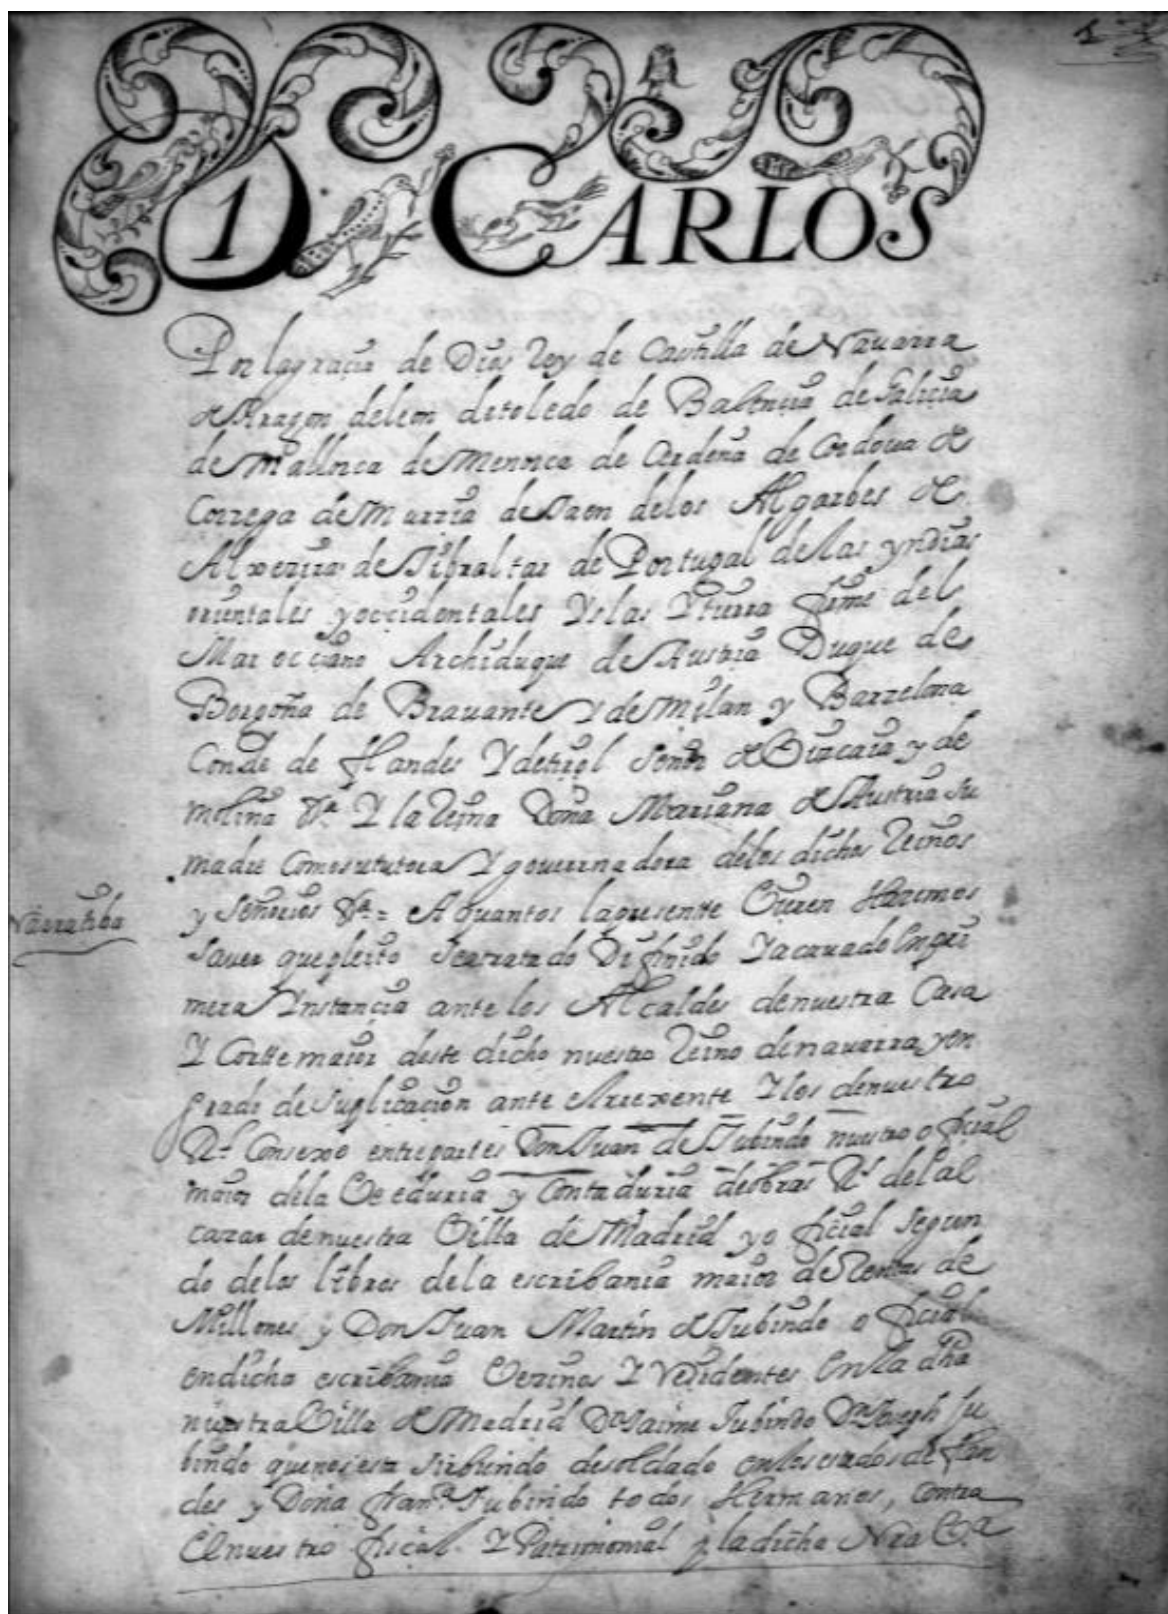 1
D CARLOS
1
Por la graçia de Dios Rey de Castilla de Nauarra
de Aragon de leon de toledo de Balençia de Galiçia
de Mallorca de Menorca de Cerdeña de Cordoua de
Corzega de Murzia de Jaen de los Algarbes de
Alxezira de Jibraltar de Portugal de las yndias
orientales y occidentales Yslas Y tierra firme del
Mar occiano Archiduque de Austria Duque de
Borgoña de Brauante Y de Milan y Barzelona
Conde de Flandes Y de tirol Señor de Vizcaia y de
molina &a Y la Reina Doña Mariana de Austria su
madre Como su tutora Y gouernadora de los dichos Reinos
y Señorios &a = A quantos la presente Vieren Hazemos
Narratiba
Sauer que pleito Se a tratado Difinido Y acauado En pri
mera Ynstançia ante los Alcaldes de nuestra Casa
Y Corte maior deste dicho nuestro Reino de nauarra, y en
grado de Suplicaçion ante el rrexente Y los de nuestro
Rl Consexo entre partes Don Juan de Jubindo nuestro ofiçial
maior de la Veeduria y Contaduria de obras Rs del al
cazar de nuestra Villa de Madrid y ofiçial Segun
do de los libros de la escribania maior de Rentas de
Millones y Don Juan Martin de Jubindo ofiçial
en dicha escribania Vezinos Y Residentes En la dha
nuestra Villa de Madrid Dn Jaime Jubindo Dn Joseph Ju
bindo que nos esta sirbiendo de soldado en los estados de flan
des y Doña Franca Jubindo todos Hermanos, Contra
El nuestro fiscal Y Patrimonial y la dicha Nra